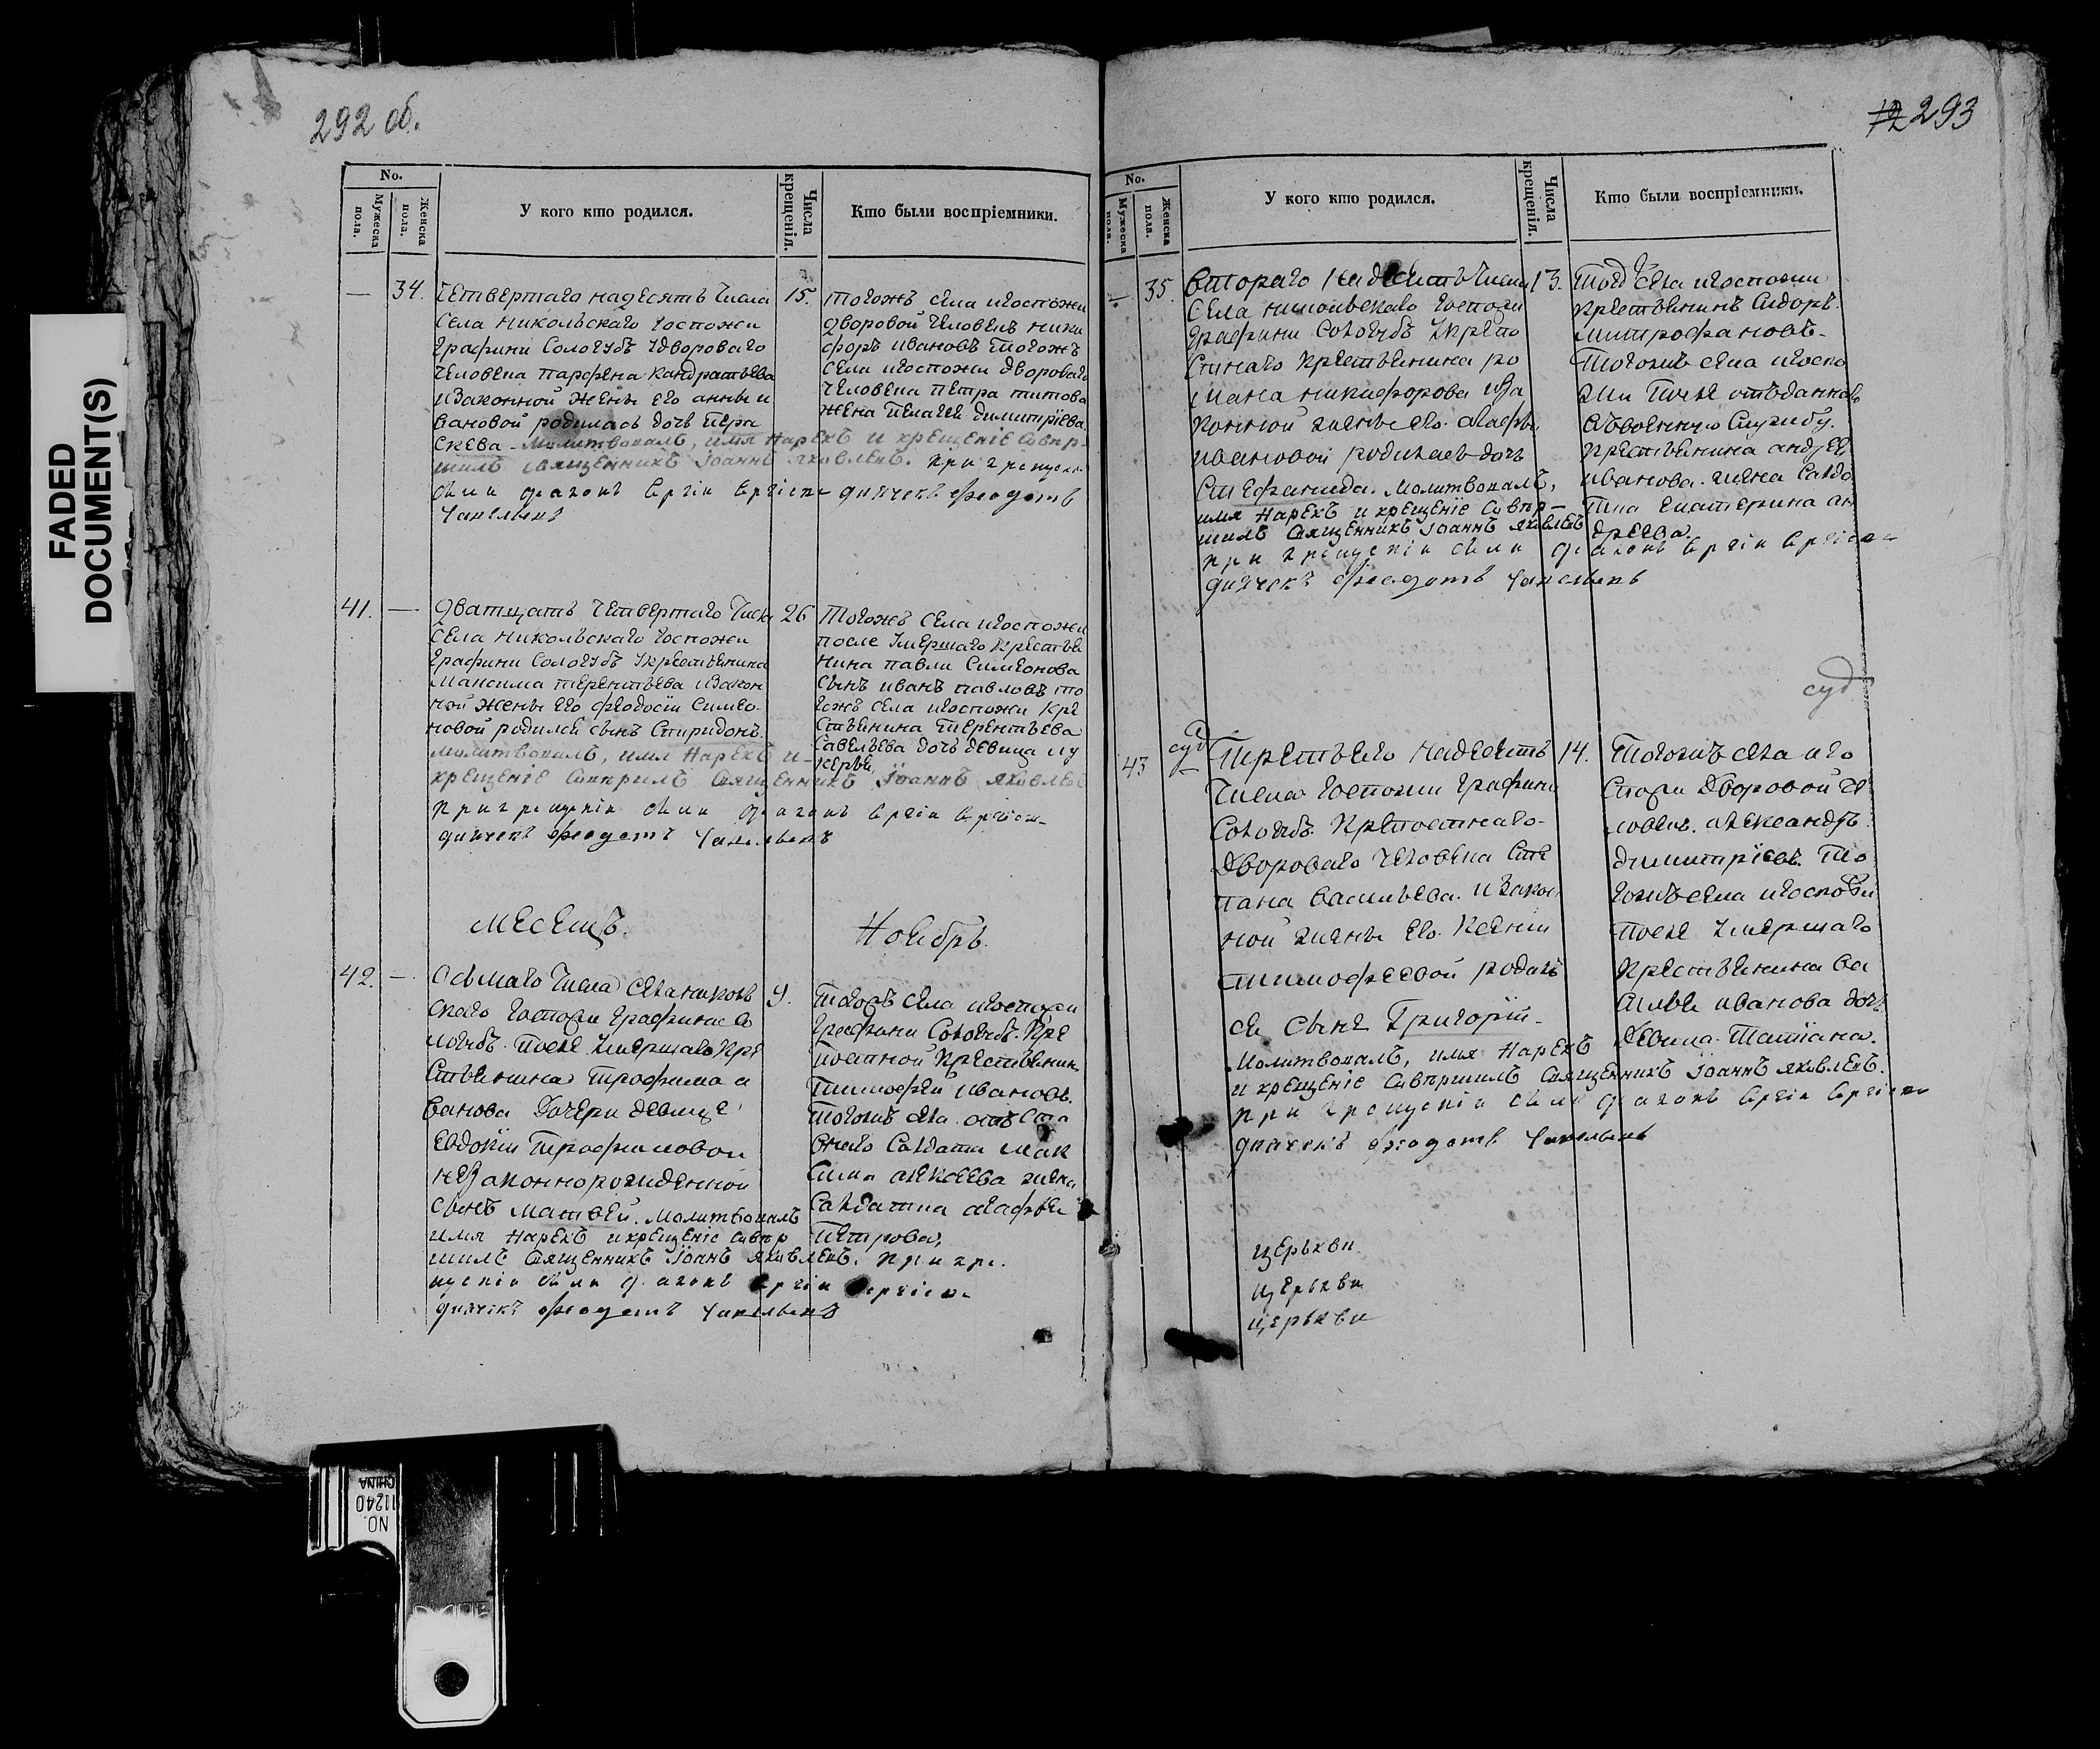 FADED
DOCUMENT(S)
292 об.
No.
Мужеска пола.
Женска пола.
У кого кто родился.
Числа крещенія.
Кто были воспріемники.
34.
Четвертаго надесять Числа
Села Никольскаго Госпожи
Графини Сологубъ Удвороваго
Человека Парфена Кандратьева
изаконной жены его анны и
вановой родилась дочь Пера
скева - Молитвовалъ, имя Нарекъ и крещеніе Совер-
шилъ священникъ Іоаннъ Яковлевъ. При крещеніи
были діаконъ
дьячекъ Феодотъ
15.
Тогожъ села игоспожи
дворовой Человекъ Ники
форъ ивановъ Тогожъ
Села игоспожи двороваго
Человека Петра титова
жена Пелагея димитріева
41.
Дватцать Четвертаго Числа
Села Никольскаго Госпожи
Графини Сологубъ Укрестьянина
Максима терентьева изакон
ной жены его феодосіи Симео-
новой родился сынъ Спиридонъ.
Молитвовалъ, имя Нарекъ и
крещеніе Совершилъ Священникъ Іоаннъ Яковлевъ
При крещеніи были діаконъ
дьячекъ Феодотъ
26
Тогожъ Села игоспожи
после Умершаго Крестья
нина павла Симеонова
Сынъ иванъ павловъ то
гожъ села игоспожи кре
стьянина Терентьева
Савельева дочь девица лу
керья
Месецъ.
Ноябрь.
42.
Осьмаго Числа Села николь
скаго Госпожи Графини Со
логубъ. После Умершаго Кре
стьянина Трофима и
ванова Дочери девице
Евдокіи Трофимовой
незаконнорожденной
сынъ Матвей. Молитвовалъ
имя Нарекъ икрещеніе Совер
шилъ Священникъ Іоанъ Яковлевъ. При кре
щеніи были діаконъ
дьячекъ Феодотъ
9.
Тогожъ села игоспожи
Графини Сологубъ. Кре
постной Крестьянинъ
Тимофей Ивановъ.
Тогожъ села
Солдата Мак
сима алексеева жена
Салдатка агафья
Петрова,
293
No.
Мужеска пола.
Женска пола.
У кого кто родился.
Числа крещенія.
Кто были воспріемники.
35.
Втораго Надесять Числа
Села никольскаго Госпожи
Графини Сологубъ Укрепо
стнаго Крестьянина ро
мана никифорова иза
конной жены его. агафьи
ивановой родилась дочь
Стефанида. Молитвовалъ,
имя Нарекъ и крещеніе Совер-
шилъ Священникъ Іоаннъ Яковлевъ
При крещеніи были діаконъ
дьячекъ Феодотъ
13.
Тогожъ Села игоспожи
Крестьянинъ Сидоръ
митрофановъ -
Тогожъ села игоспо
жи После отъданнаго
въвоенную Службу.
Крестьянина андрея
иванова. жена Салдо
тка Екатерина ан
дреева.
суд
суд
43
Третьяго Надесять
Числа Госпожи Графини
Сологубъ. Крепостнаго -
Двороваго Человека Сте
пана васильева. изакон
ной жены его. Ксеніи
тимофеевой родил
ся Сынъ Григорій -
Молитвовалъ, имя Нарекъ
и крещеніе Совершилъ Священникъ Іоаннъ Яковлевъ.
При крещеніи были діаконъ
дьячекъ Феодотъ
14.
Тогожъ села иго
спожи Дворовой Че
ловекъ. александръ
димитріевъ. То
гожъ села игоспожи
После Умершаго
Крестьянина Ва
силья иванова дочь
Девица Татіана.
церькви
церькви
церькви
NO.
11240
CHINA